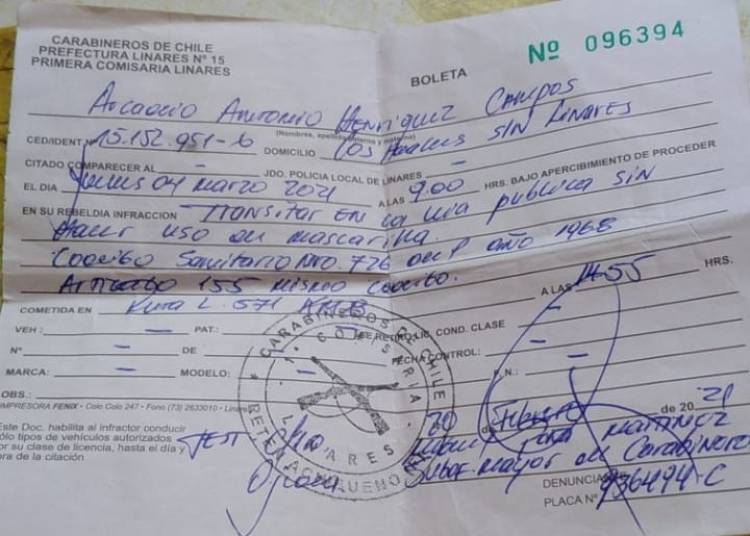 CARABINEROS DE CHILE
PREFECTURA LINARES Nº 15
PRIMERA COMISARIA LINARES
Nº 096394
BOLETA
Arcadio Antonio Henriquez Campos
(Nombres, apellido paterno y materno)
CED/IDENT Nº 15.152.951-6 DOMICILIO Los Hualles SIN LINARES
CITADO COMPARECER AL — JDO. POLICIA LOCAL DE LINARES —
EL DIA Jueves 04 marzo 2021 A LAS 900 HRS. BAJO APERCIBIMIENTO DE PROCEDER
EN SU REBELDIA INFRACCION Transitar EN la via publica SIN
Hacer uso de mascarilla.
Codigo Sanitario Nro. 726 del año 1968
Articulo 155 mismo Codigo.
A LAS 1455 HRS.
COMETIDA EN Ruta L. 571
VEH : — PAT.: — SE RETIRO LIC. COND. CLASE —
Nº — DE — FECHA CONTROL: —
MARCA: — MODELO: — R.N.: —
OBS.:
IMPRESORA FENIX • Colo Colo 247 • Fono (73) 2633010 • Linares
CARABINEROS DE CHILE
1. COMISARIA
LINARES
RETEN ACHIBUENO
20 de Febrero de 2021
Este Doc. habilita al infractor conducir
sólo tipos de vehículos autorizados
por su clase de licencia, hasta el día y
hora de la citación
Martinez
Subof. mayor de Carabineros
DENUNCIA
PLACA Nº 936494-C